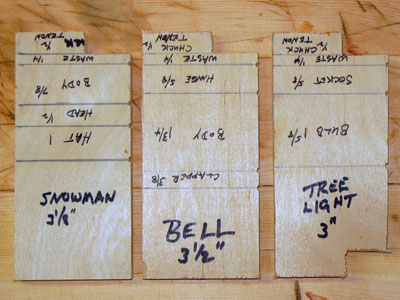 1/2
TENON
WASTE 1/4
BODY 7/8
HEAD 1/2
HAT 1
SNOWMAN
3 1/8"
CHUCK 1/2
TENON
WASTE 1/4
HINGE 5/8
BODY 1 3/4
CLAPPER 3/8
BELL
3 1/2"
1/2 CHUCK
TENON
WASTE 1/4
SOCKET 5/8
BULB 1 5/8
TREE
LIGHT
3"